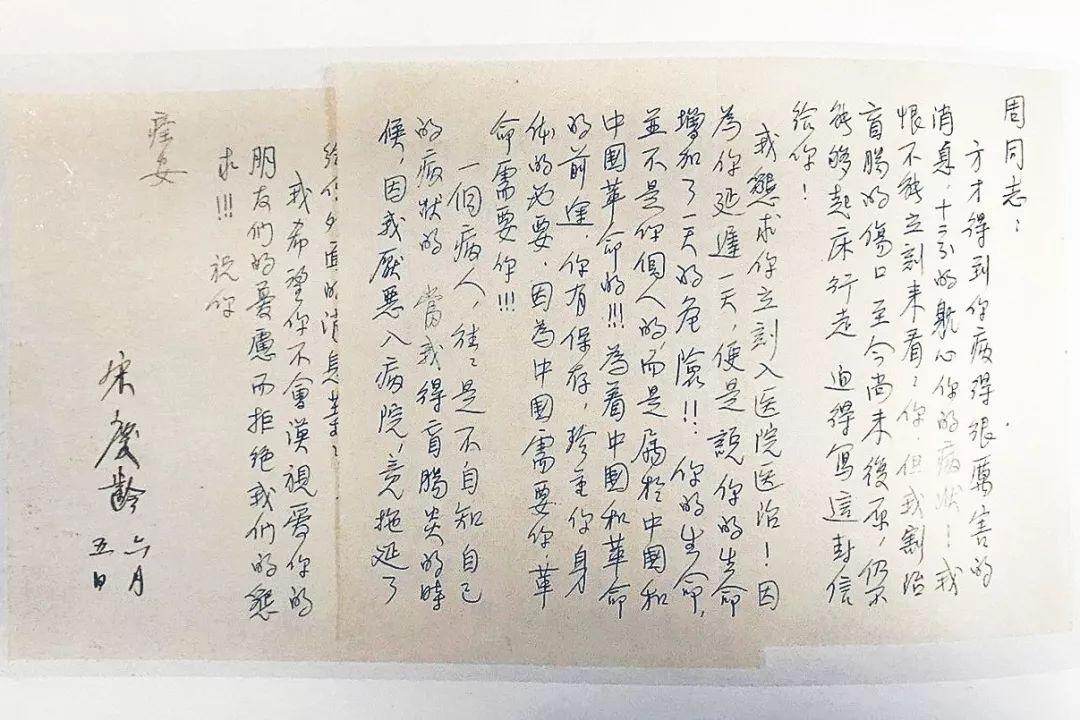 周同志：
方才得到你病得很厲害的
消息，十二分的躭心你的病狀！我
恨不能立刻来看〻你，但我割治
盲腸的傷口至今尚未復原，仍不
能够起床行走 迫得寫這封信
給你！
我懇求你立刻入医院医治！因
為你延遲一天，便是説你的生命
增加了一天的危險!! 你的生命，
並不是你個人的，而是屬於中國和
中國革命的!!! 為着中國和革命
的前途，你有保存，珍重你身
体的必要，因為中國需要你，革
命需要你!!!
一個病人，往〻是不自知自己
的病狀的 當我得盲腸炎的時
候，因我厭惡入病院，竟拖延了
的消息等〻
我希望你不會漠視愛你的
朋友們的憂慮而拒絕我們的懇
求!!! 祝你
痊安
宋慶齡 六月
五日